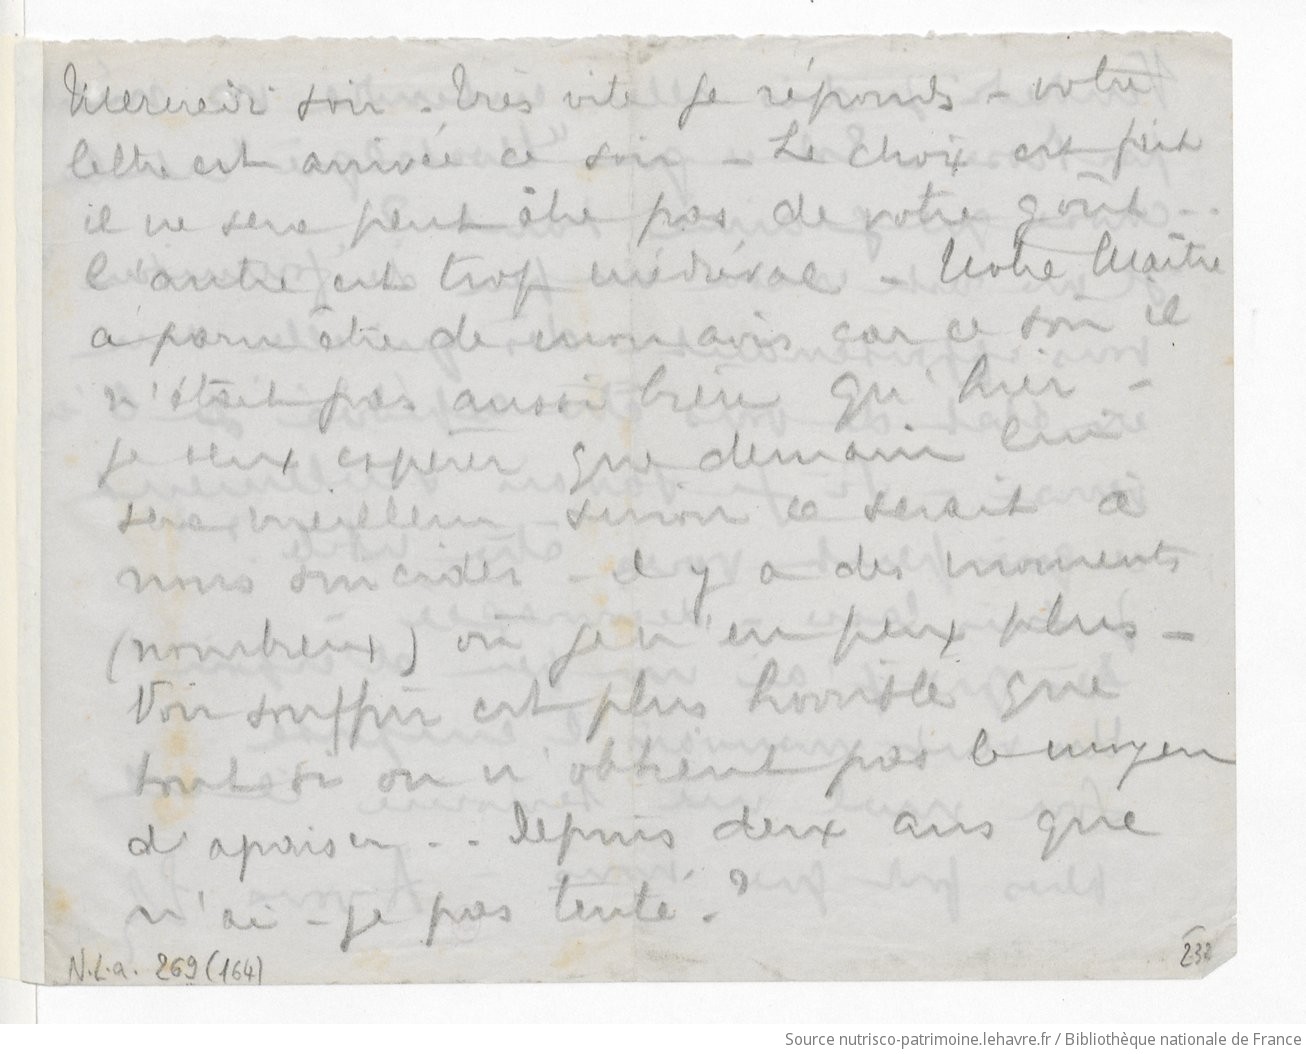 Mercredi soir. Très vite je réponds - votre
lettre est arrivée ce soir - Le choix est fait
il ne sera peut être pas de votre goût..
l'autre est trop médiéval - Notre Maître
a paru être de mon avis car ce soir il
n'était pas aussi bien qu' hier -
je veux espérer que demain lui
sera meilleur - sinon ce serait à
nous suicider - il y a des moments
(nombreux) où je n'en peux plus -
Voir souffrir est plus horrible que
tout si on n'obtient pas le moyen
d'apaiser.. Depuis deux ans que
n'ai-je pas tenté.?
N.L.a. 269 (164)
232
Source nutrisco-patrimoine.lehavre.fr / Bibliothèque nationale de France